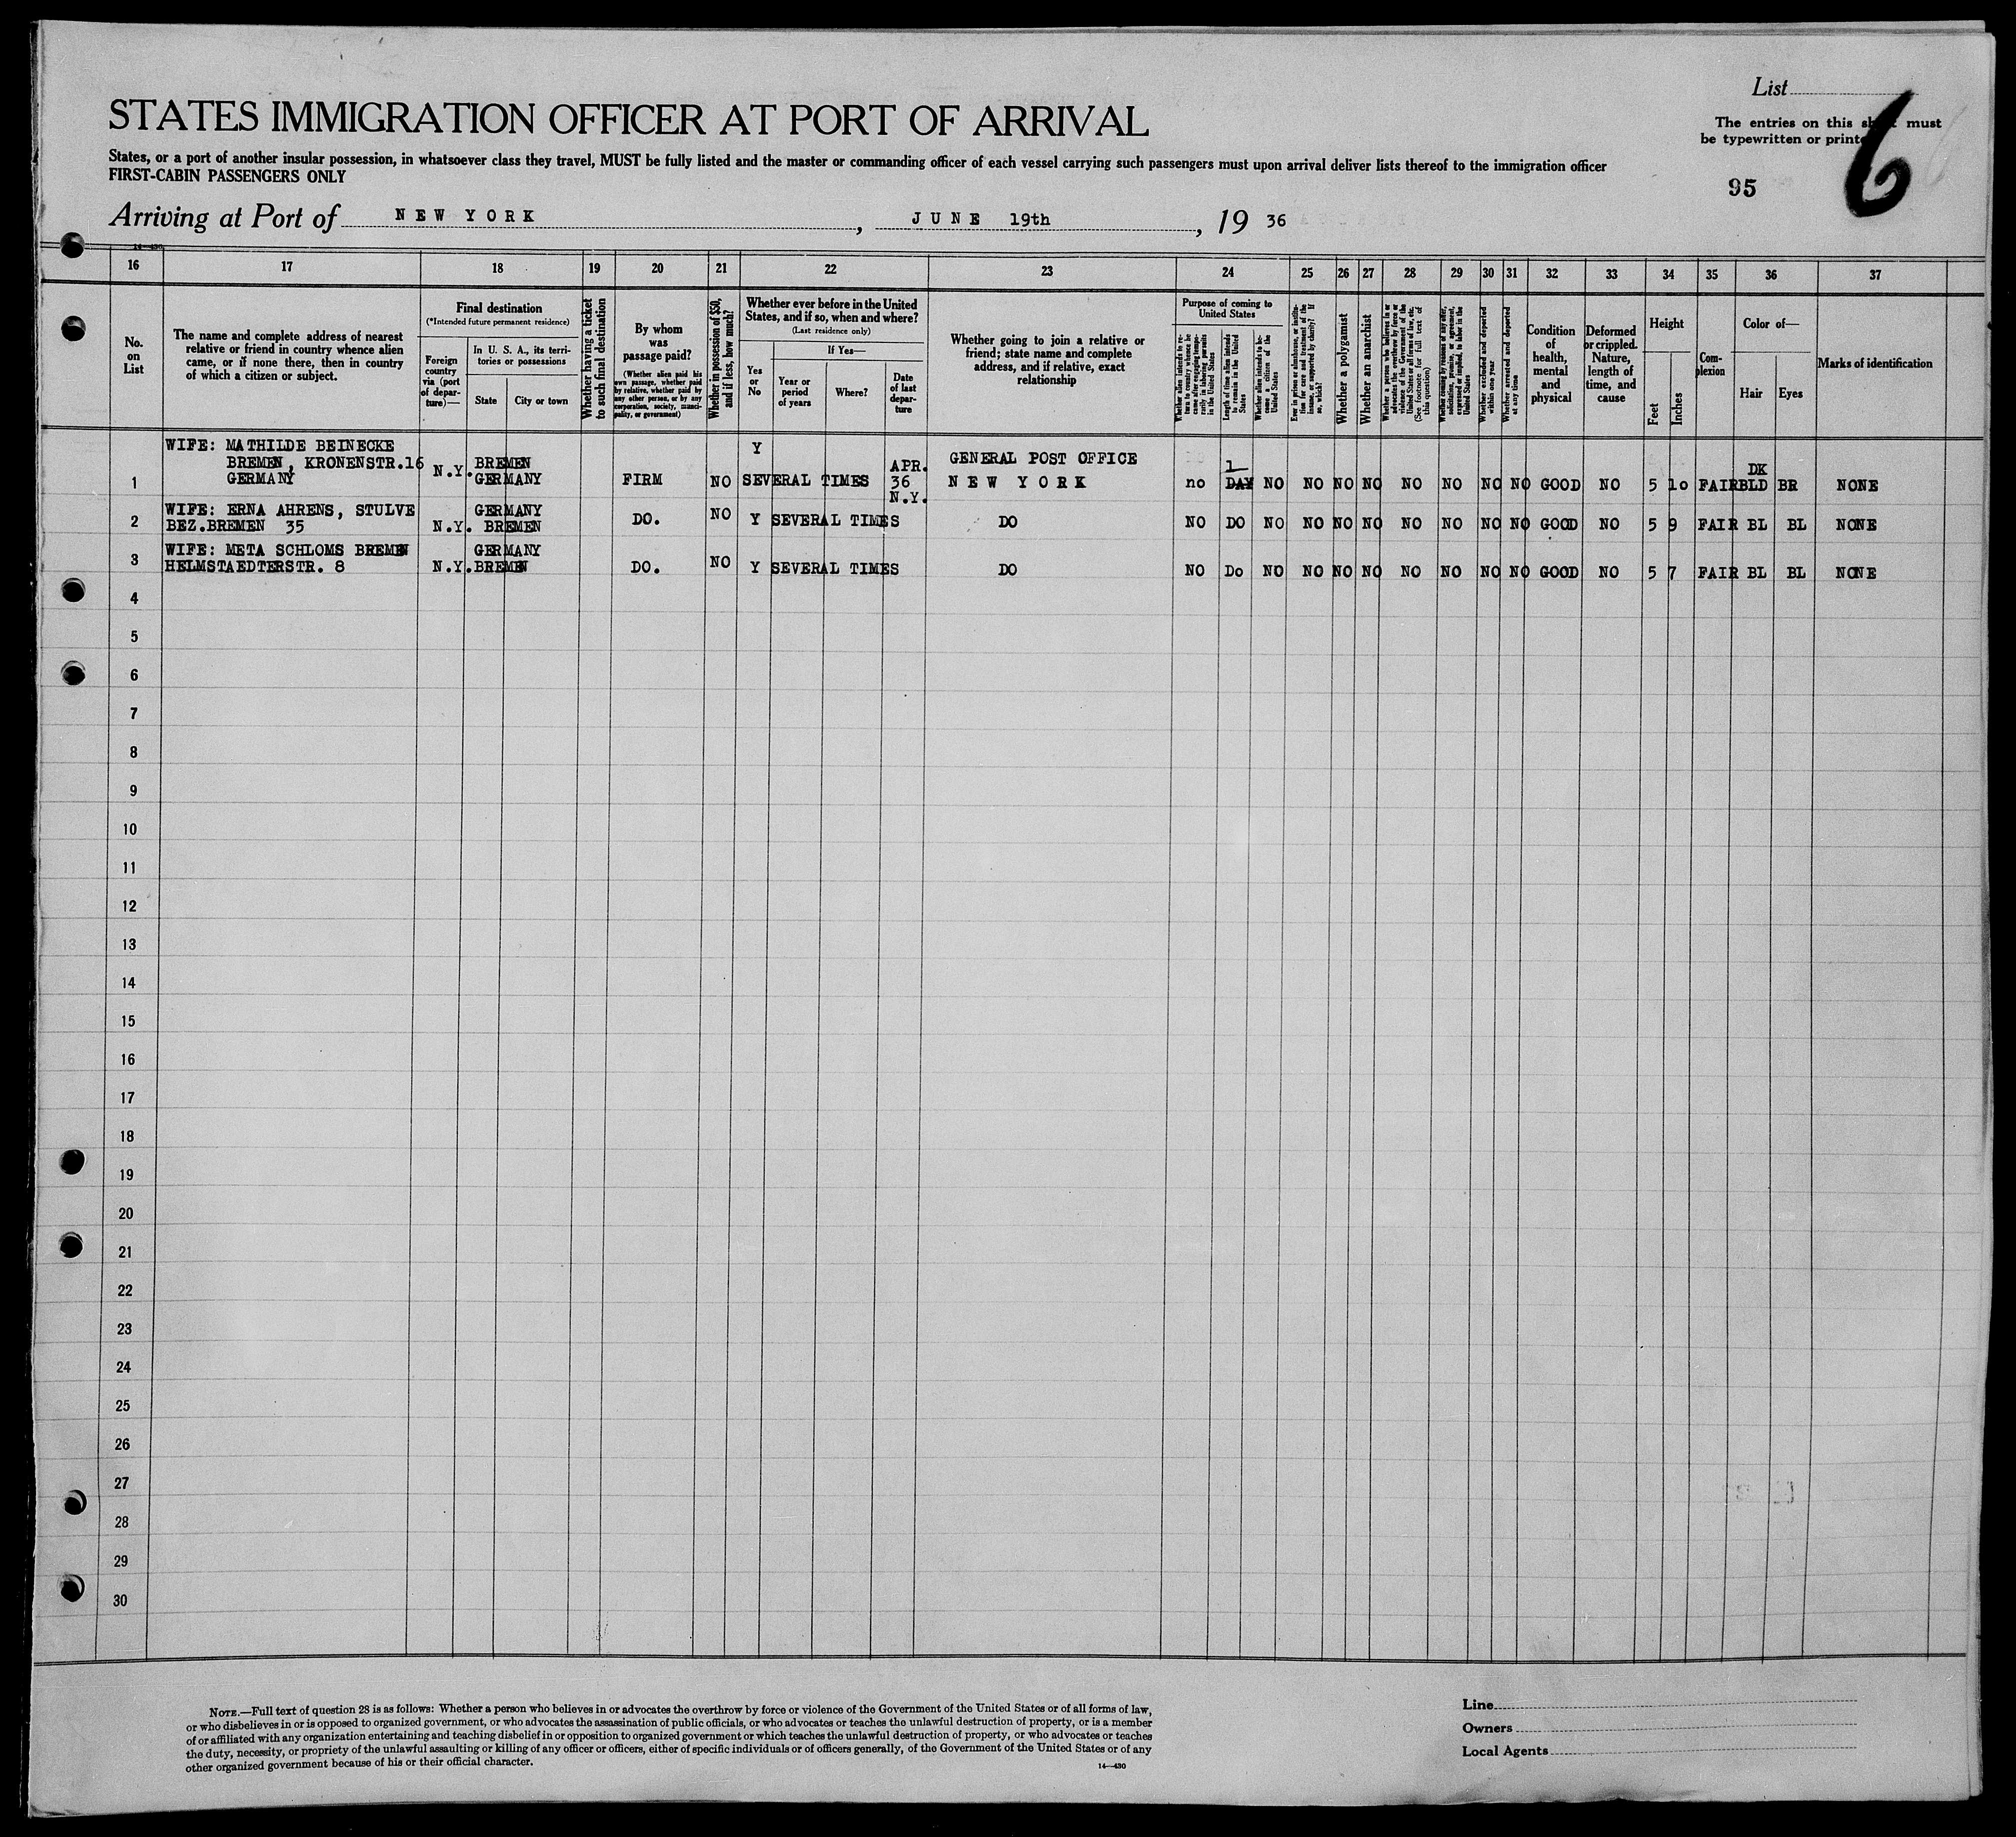 List
STATES IMMIGRATION OFFICER AT PORT OF ARRIVAL
The entries on this must
be typewritten or
6
States, or a port of another insular possession, in whatsoever class they travel, MUST be fully listed and the master or commanding officer of each vessel carrying such passengers must upon arrival deliver lists thereof to the immigration officer
FIRST-CABIN PASSENGERS ONLY
95
Arriving at Port of NEW YORK, JUNE 19th, 19 36
14—430
16 17 18 19 20 21 22 23 24 25 26 27 28 29 30 31 32 33 34 35 36 37
No. on List
The name and complete address of nearest
relative or friend in country whence alien
came, or if none there, then in country
of which a citizen or subject.
Final destination
(*Intended future permanent residence)
Foreign country via (port of departure)—
In U. S. A., its territories or possessions
State
City or town
Whether having a ticket to such final destination
By whom was passage paid?
(Whether alien paid his own passage, whether paid by relative, whether paid by any other person, or by any corporation, society, municipality, or government)
Whether in possession of $50, and if less, how much?
Whether ever before in the United States, and if so, when and where?
(Last residence only)
Yes or No
If Yes—
Year or period of years
Where?
Date of last departure
Whether going to join a relative or
friend; state name and complete
address, and if relative, exact
relationship
Purpose of coming to United States
Whether alien intends to return to country whence he came after engaging temporarily in laboring pursuits in the United States
Length of time alien intends to remain in the United States
Whether alien intends to become a citizen of the United States
Ever in prison or almshouse, or institution for care and treatment of the insane, or supported by charity? If so, which?
Whether a polygamist
Whether an anarchist
Whether a person who believes in or advocates the overthrow by force or violence of the Government of the United States or all forms of law, etc. (See footnote for full text of this question)
Whether coming by reason of any offer, solicitation, promise, or agreement, expressed or implied, to labor in the United States
Whether excluded and deported within one year
Whether arrested and deported at any time
Condition of health, mental and physical
Deformed or crippled. Nature, length of time, and cause
Height
Feet
Inches
Complexion
Color of—
Hair
Eyes
Marks of identification
1 WIFE: MATHILDE BEINECKE BREMEN, KRONENSTR.16 GERMANY N.Y. BREMEN GERMANY FIRM NO Y SEVERAL TIMES APR. 36 N.Y. GENERAL POST OFFICE NEW YORK no 1 DAY NO NO NO NO NO NO NO NO GOOD NO 5 10 FAIR DK BLD BR NONE
2 WIFE: ERNA AHRENS, STULVE BEZ.BREMEN 35 N.Y. GERMANY BREMEN DO. NO Y SEVERAL TIMES DO NO DO NO NO NO NO NO NO NO NO GOOD NO 5 9 FAIR BL BL NONE
3 WIFE: META SCHLOMS BREMEN HELMSTAEDTERSTR. 8 N.Y. GERMANY BREMEN DO. NO Y SEVERAL TIMES DO NO Do NO NO NO NO NO NO NO NO GOOD NO 5 7 FAIR BL BL NONE
4
5
6
7
8
9
10
11
12
13
14
15
16
17
18
19
20
21
22
23
24
25
26
27
28
29
30
NOTE.—Full text of question 28 is as follows: Whether a person who believes in or advocates the overthrow by force or violence of the Government of the United States or of all forms of law,
or who disbelieves in or is opposed to organized government, or who advocates the assassination of public officials, or who advocates or teaches the unlawful destruction of property, or is a member
of or affiliated with any organization entertaining and teaching disbelief in or opposition to organized government or which teaches the unlawful destruction of property, or who advocates or teaches
the duty, necessity, or propriety of the unlawful assaulting or killing of any officer or officers, either of specific individuals or of officers generally, of the Government of the United States or of any
other organized government because of his or their official character.
14—430
Line
Owners
Local Agents